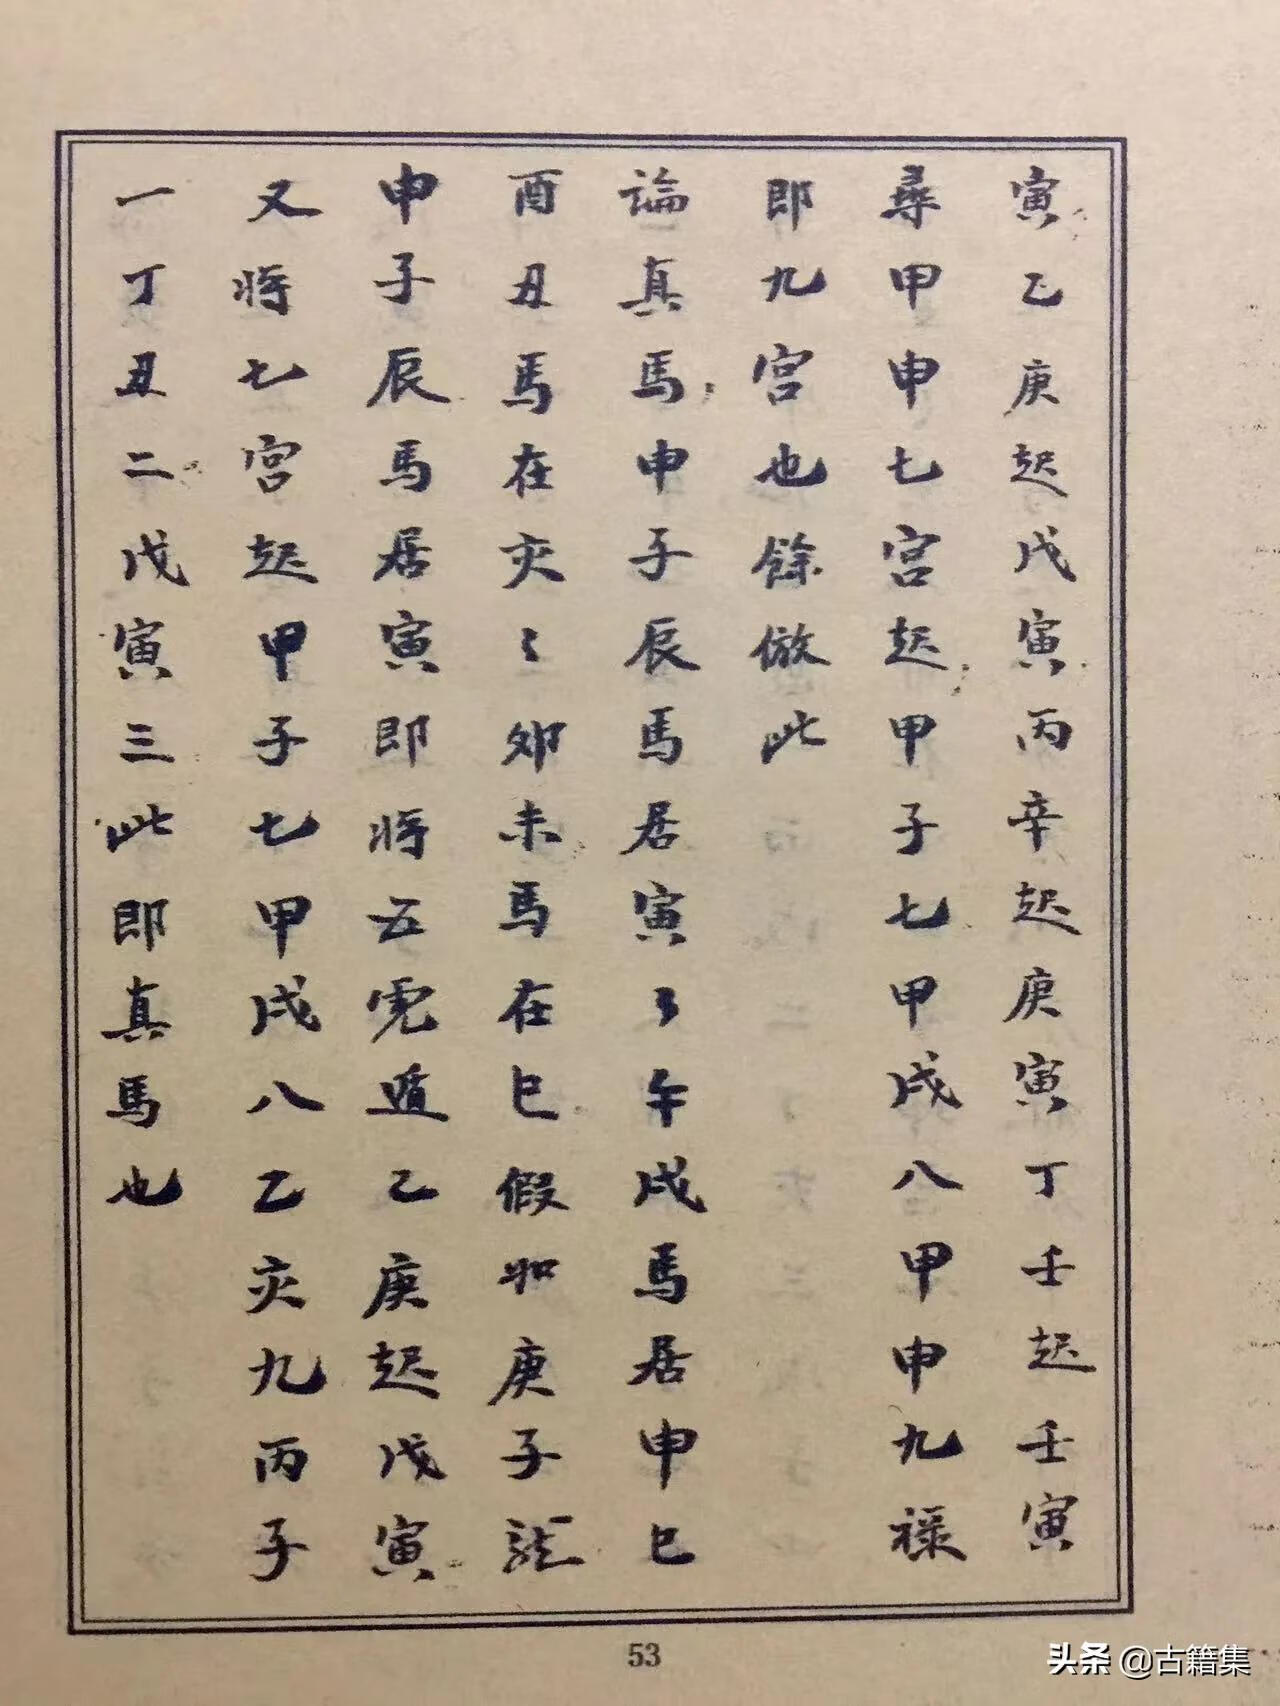 寅乙庚起戊寅丙辛起庚寅丁壬起壬寅
尋甲申七宫起甲子七甲戌八甲申九禄
即九宫也餘倣此
论真馬申子辰馬居寅〻午戌馬居申巳
酉丑馬在亥〻卯未馬在巳假如庚子龍
申子辰馬居寅即将五虎遁乙庚起戊寅
又将七宫起甲子七甲戌八乙亥九丙子
一丁丑二戊寅三此即真馬也
53
头条 @古籍集